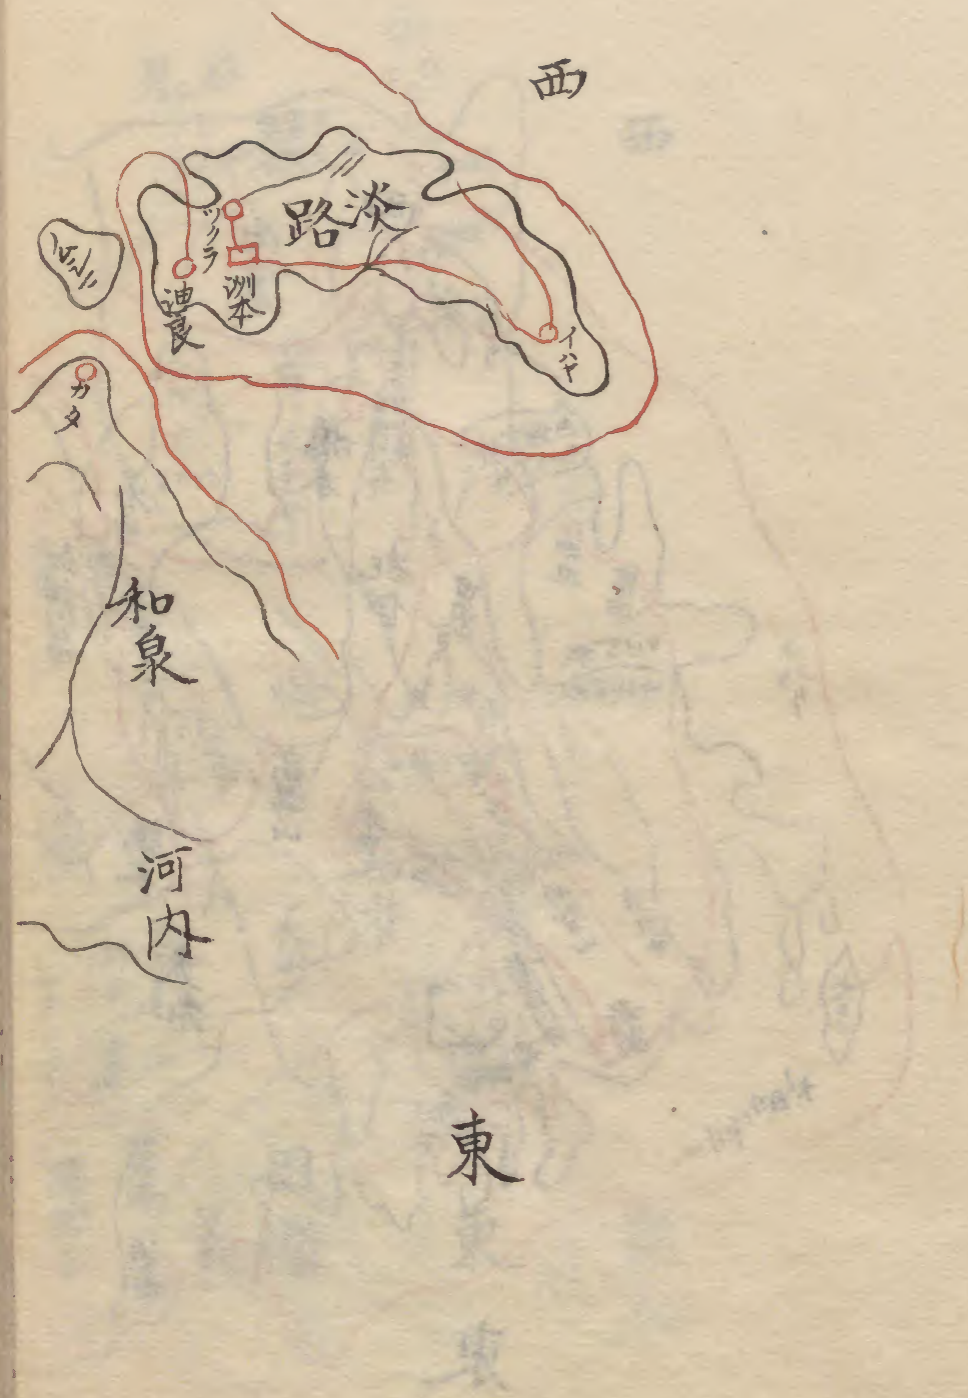 西
淡路
ツクラ
洲本
迪良
イハヤ
カタ
和泉
河内
東